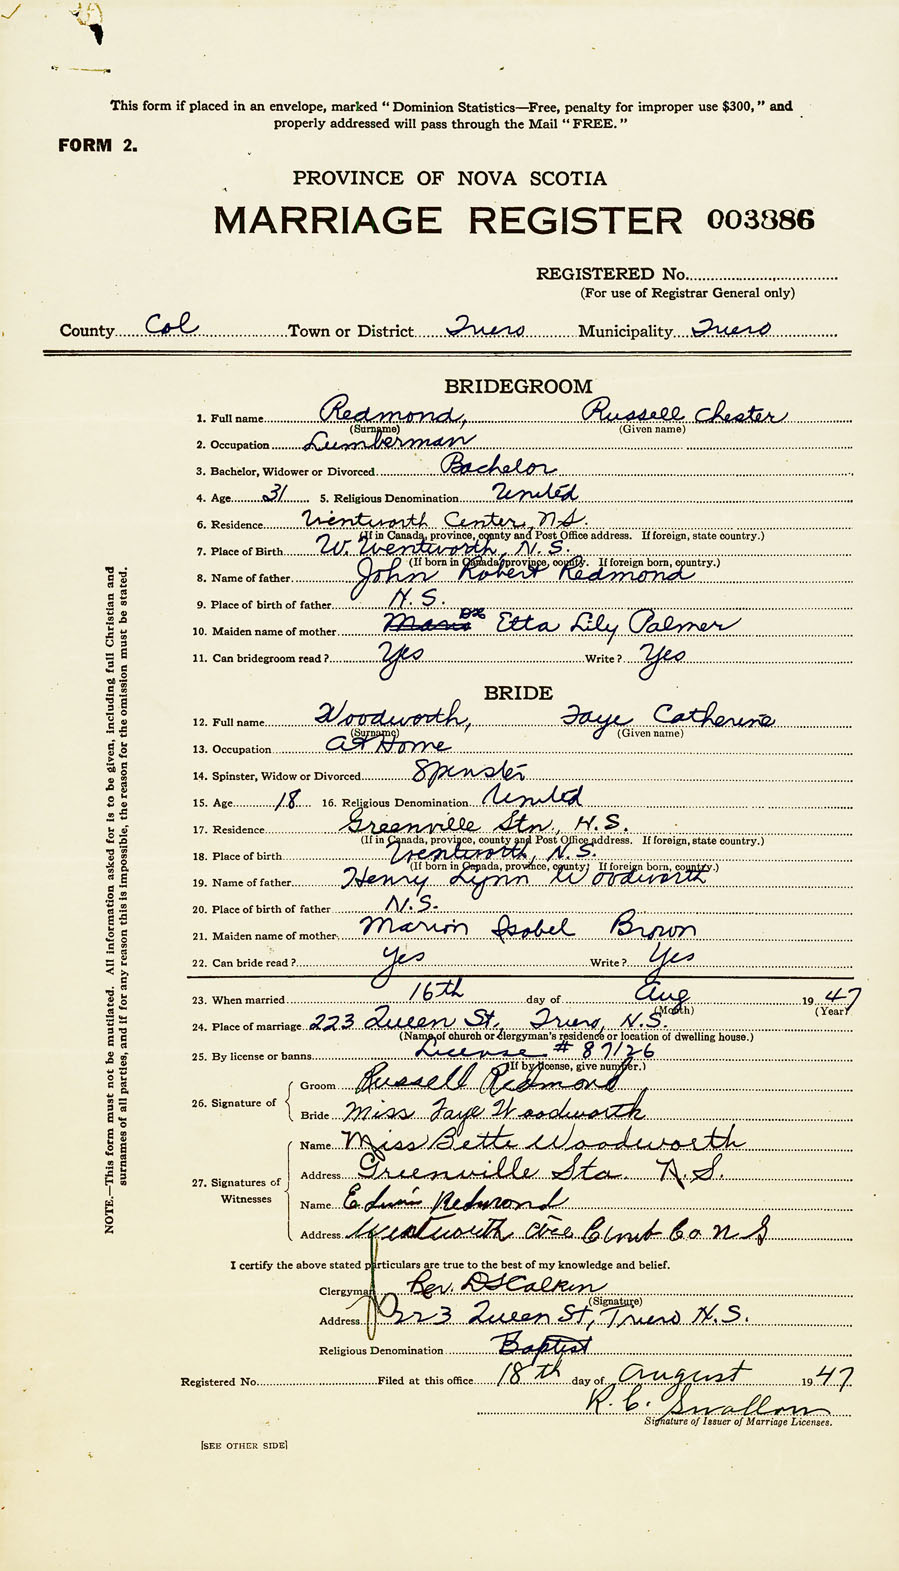 This form if placed in an envelope, marked "Dominion Statistics—Free, penalty for improper use $300," and
properly addressed will pass through the Mail "FREE."
FORM 2.
PROVINCE OF NOVA SCOTIA
MARRIAGE REGISTER 003886
REGISTERED No.
(For use of Registrar General only)
County Col Town or District Truro Municipality Truro
BRIDEGROOM
1. Full name Redmond, Russell Chester
(Surname) (Given name)
2. Occupation Lumberman
3. Bachelor, Widower or Divorced Bachelor
4. Age 31 5. Religious Denomination United
6. Residence Wentworth Center, N.S.
(If in Canada, province, county and Post Office address. If foreign, state country.)
7. Place of Birth W. Wentworth, N.S.
(If born in Canada, province, county. If foreign born, country.)
8. Name of father John Robert Redmond
9. Place of birth of father N.S.
10. Maiden name of mother Etta Lily Palmer
11. Can bridegroom read? Yes Write? Yes
BRIDE
12. Full name Woodworth, Faye Catherine
(Surname) (Given name)
13. Occupation At Home
14. Spinster, Widow or Divorced Spinster
15. Age 18 16. Religious Denomination United
17. Residence Greenville Stn, N.S.
(If in Canada, province, county and Post Office address. If foreign, state country.)
18. Place of birth Wentworth, N.S.
(If born in Canada, province, county. If foreign born, country.)
19. Name of father Henry Lynn Woodworth
20. Place of birth of father N.S.
21. Maiden name of mother Marion Isobel Brown
22. Can bride read? Yes Write? Yes
23. When married 16th day of Aug 19 47
(Month) (Year)
24. Place of marriage 223 Queen St, Truro, N.S.
(Name of church or clergyman's residence or location of dwelling house.)
25. By license or banns License # 87126
(If by license, give number.)
26. Signature of
Groom Russell Redmond
Bride Miss Faye Woodworth
27. Signatures of Witnesses
Name Miss Bette Woodworth
Address Greenville Sta. N.S.
Name Edwin Redmond
Address Wentworth Cumb Co N S
I certify the above stated particulars are true to the best of my knowledge and belief.
Clergyman Rev. D S Calkin
(Signature)
Address 223 Queen St, Truro N.S.
Religious Denomination Baptist
Registered No. Filed at this office 18th day of August 19 47
R. C. Swallow
Signature of Issuer of Marriage Licenses.
[SEE OTHER SIDE]
NOTE.—This form must not be mutilated. All information asked for is to be given, including full Christian and
surnames of all parties, and if for any reason this is impossible, the reason for the omission must be stated.